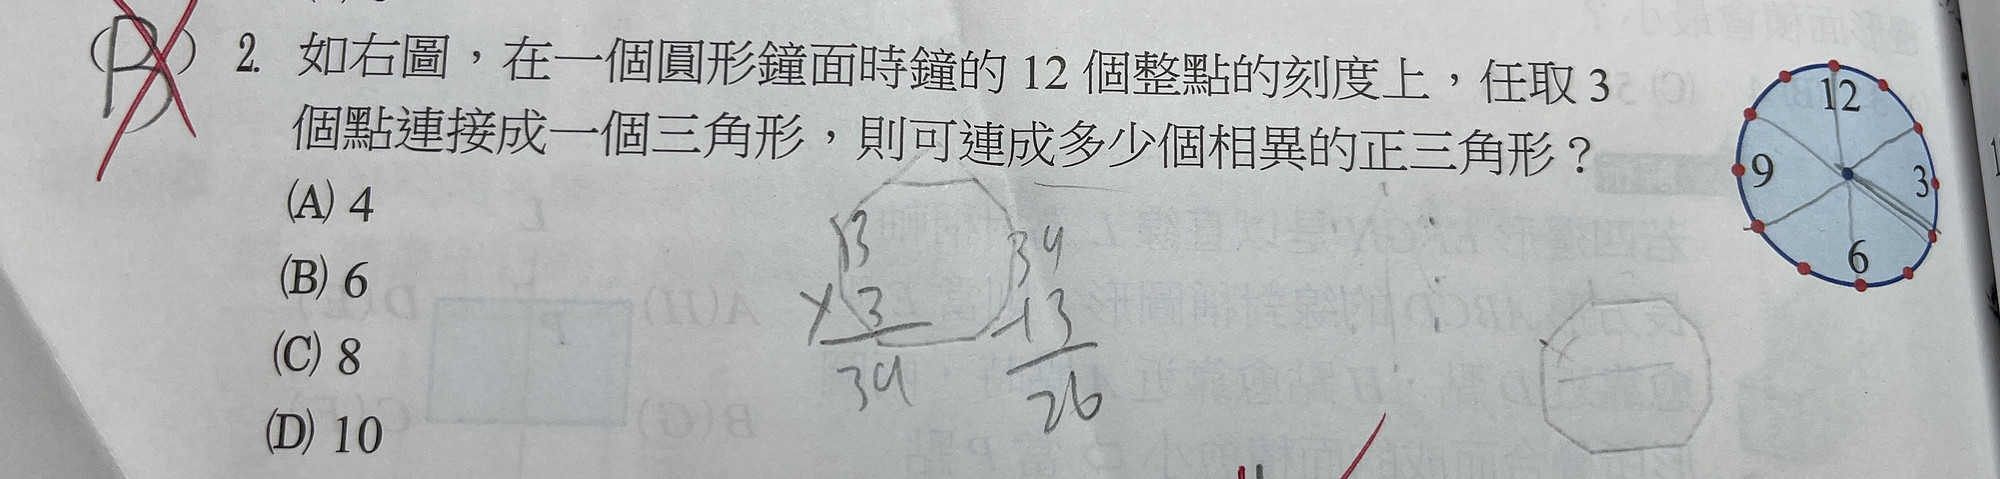 (B) 2. 如右圖，在一個圓形鐘面時鐘的 12 個整點的刻度上，任取 3
個點連接成一個三角形，則可連成多少個相異的正三角形？
(A) 4
(B) 6
(C) 8
(D) 10
12
9
3
6
13
×3
39
39
-13
26